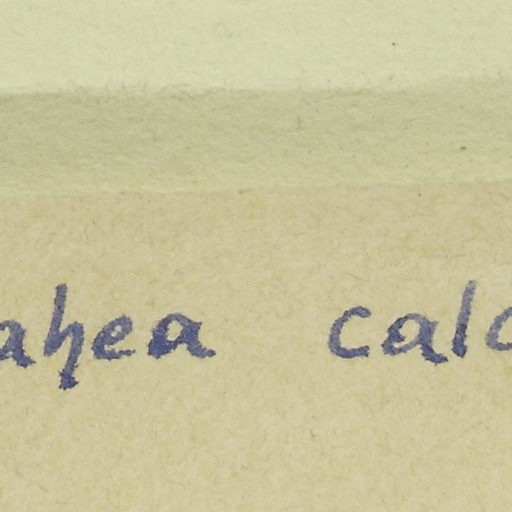 ahea calc